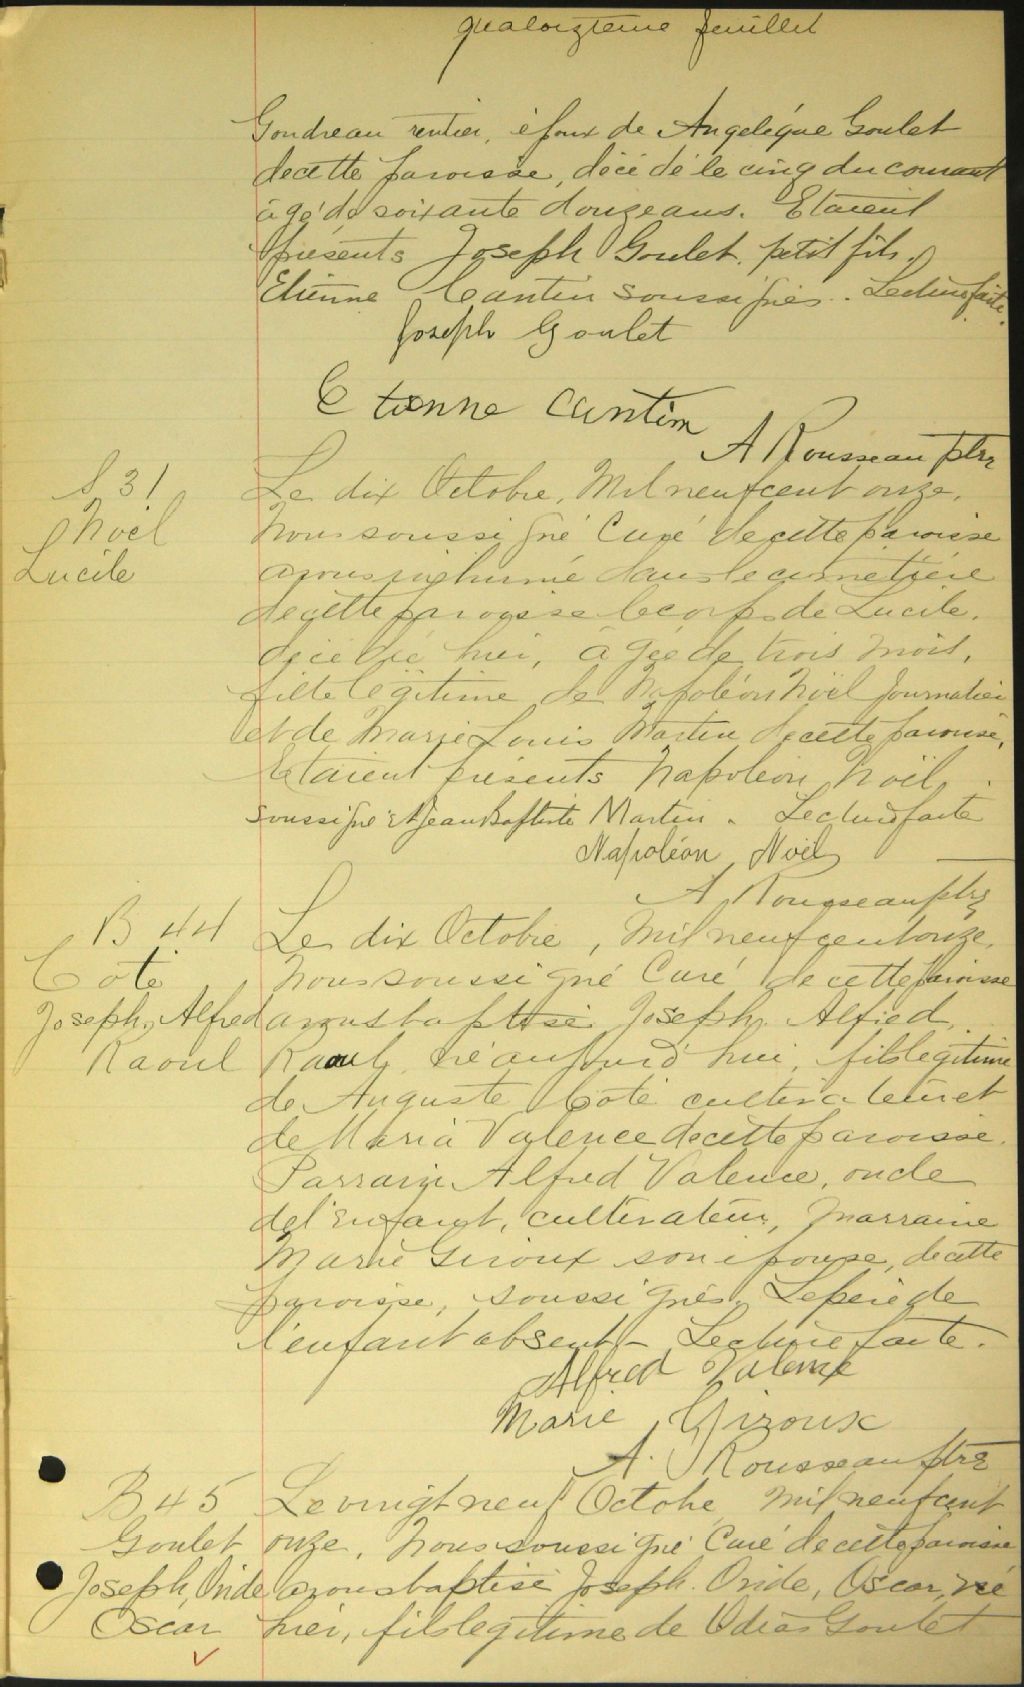 quatorzième feuillet
Goudreau rentier, époux de Angeléque Goulet
decette paroisse, décédé le cinq du courant
âgé de soixante douze ans. Etaient
présents Joseph Goulet, petit fils,
Etienne Cantin soussignés. Lecture faite.
Joseph Goulet
Etienne Cantin
A Rousseau ptre
S 31
Noël
Lucile
Le dix Octobre, Mil neuf cent onze,
Nous soussigné Curé de cette paroisse
avons inhumé dans le cimetière
de cette paroisse le corps de Lucile,
décédée hier, âgée de trois mois,
fille légitime de Napoléon Noël journalier
et de Marie Louis Martin de cette paroisse,
Etaient présents Napoléon Noël
soussigné et Jean Baptiste Martin. Lecture faite
Napoléon Noël
A Rousseau ptre
B 44
Coté
Joseph, Alfred
Raoul
Le dix Octobre, Mil neuf cent onze,
Nous soussigné Curé de cette paroisse
avons baptisé Joseph, Alfred,
Raoul, né aujourd'hui, fils légitime
de Auguste Coté cultivateur et
de Maria Valence de cette paroisse.
Parrain Alfred Valence, oncle
de l'enfant, cultivateur, Marraine
Marie Giroux son épouse, de cette
paroisse, soussignés. Le père de
l'enfant absent - Lecture faite.
Alfred Valence
Marie Giroux
A. Rousseau ptre
B 45
Goulet
Joseph, Ovide
Oscar
Le vingt neuf Octobe, mil neuf cent
onze, Nous soussigné Curé de cette paroisse
avons baptisé Joseph. Ovide, Oscar, né
hier, fils légitime de Odias Goulet